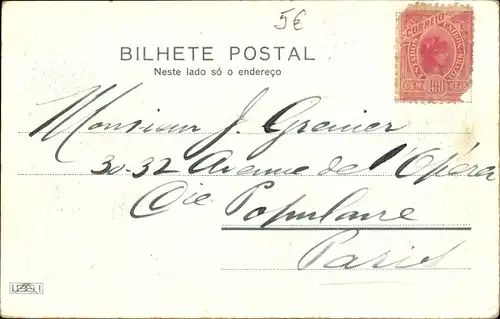 5€
BILHETE POSTAL
Neste lado só o endereço
CORREIO
ESTADOS UNIDOS BRAZIL
CEM 100 REIS
Monsieur J. Grenier
30-32 Avenue de l'Opéra
Cie Populaire
Paris